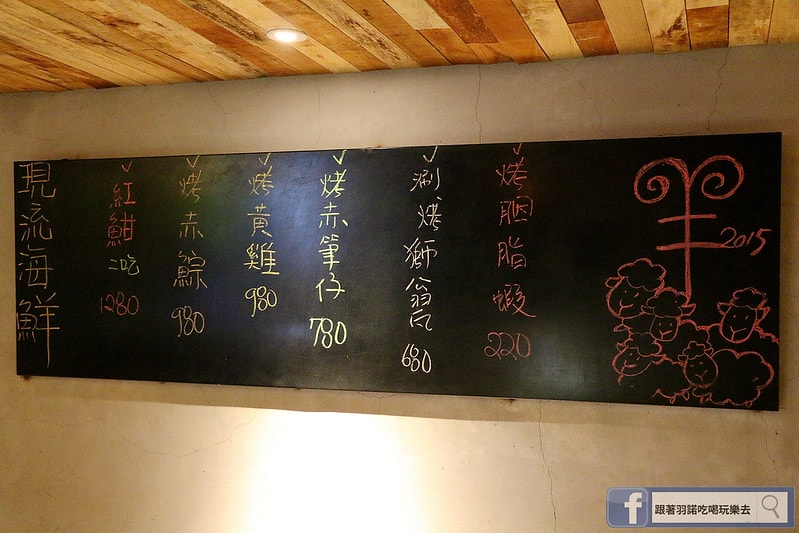 現流海鮮
紅魽 二吃 1280
烤赤鯮 980
烤黃雞 980
烤赤筆仔 780
涮烤獅翁瓜 680
烤胭脂蝦 220
羊 2015
跟著羽諾吃喝玩樂去